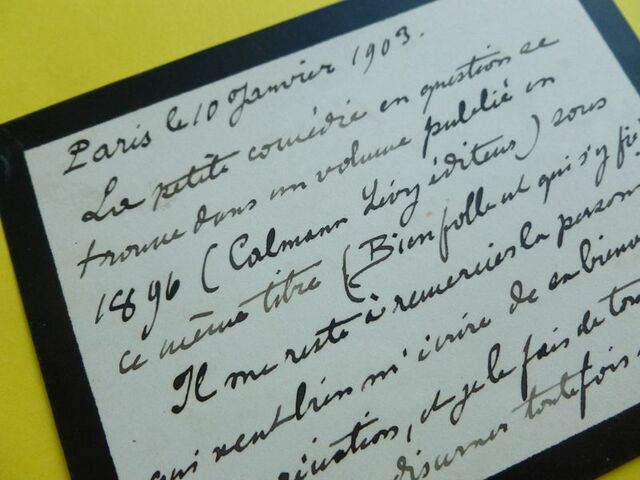 Paris le 10 Janvier 1903.
La petite comédie en question se
trouve dans un volume publié en
1896 (Calmann Lévy éditeurs) sous
ce même titre (Bien folle est qui s'y fi
Il me reste à remercier la person
qui veut bien m'écrire de sa bienve
et je le fais de tou
toutefois